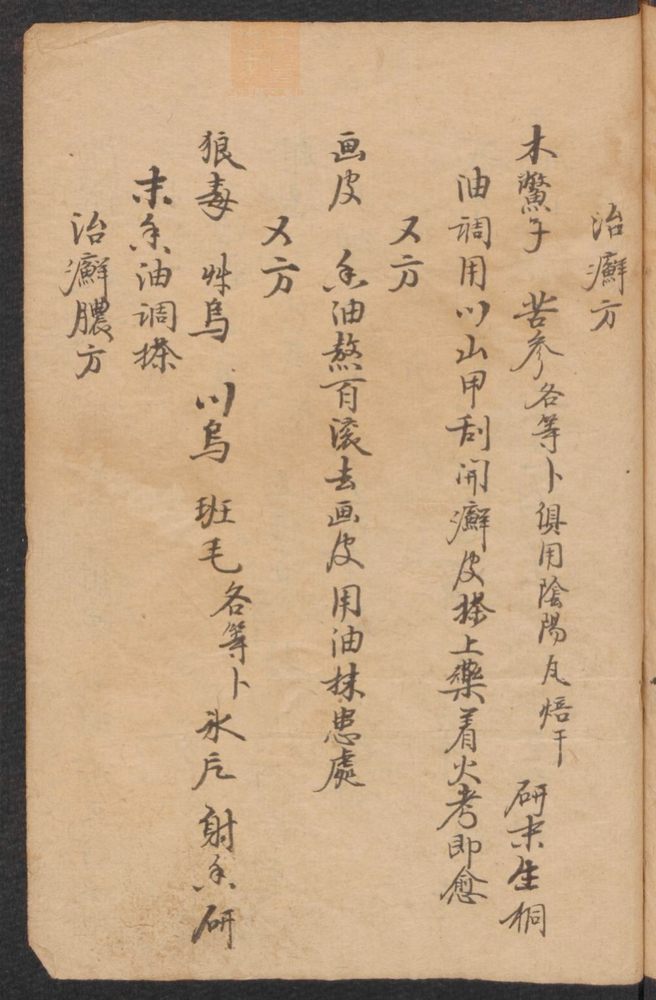 治癬方
木鱉子 苦参各等卜俱用陰陽瓦焙干 研末生桐
油调用川山甲刮開癬皮搽上藥着火考即愈
又方
画皮 香油熬百滚去画皮用油抹患處
又方
狼毒 草烏 川烏 班毛各等卜 氷片 射香研
末香油调搽
治癬膿方